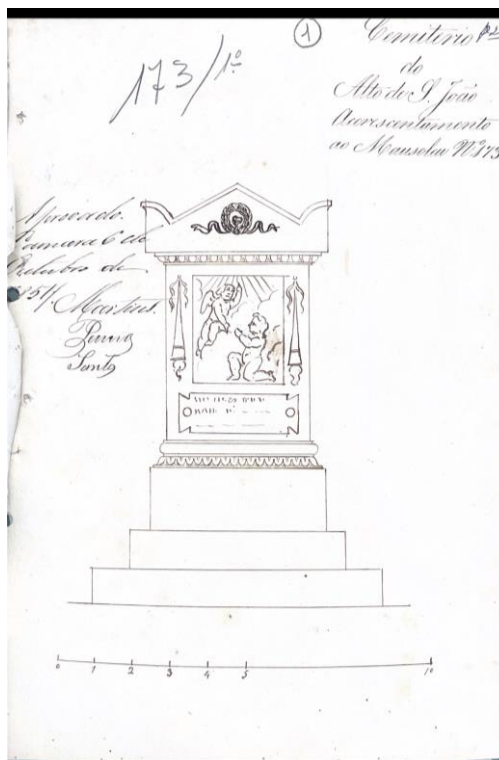 173/1º
1
Cemiterio
do
Alto de S. João
Accrescentamento
ao Mausoleu Nº 173
Aprovado.
Camara 6 de
Outubro de
Martins.
Santos
0 1 2 3 4 5 10